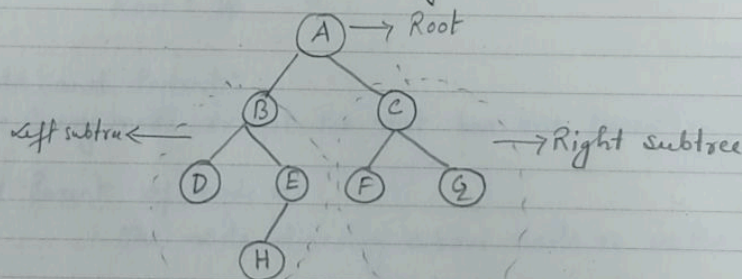 A → Root
B C
Left subtree ← → Right subtree
D E F G
H